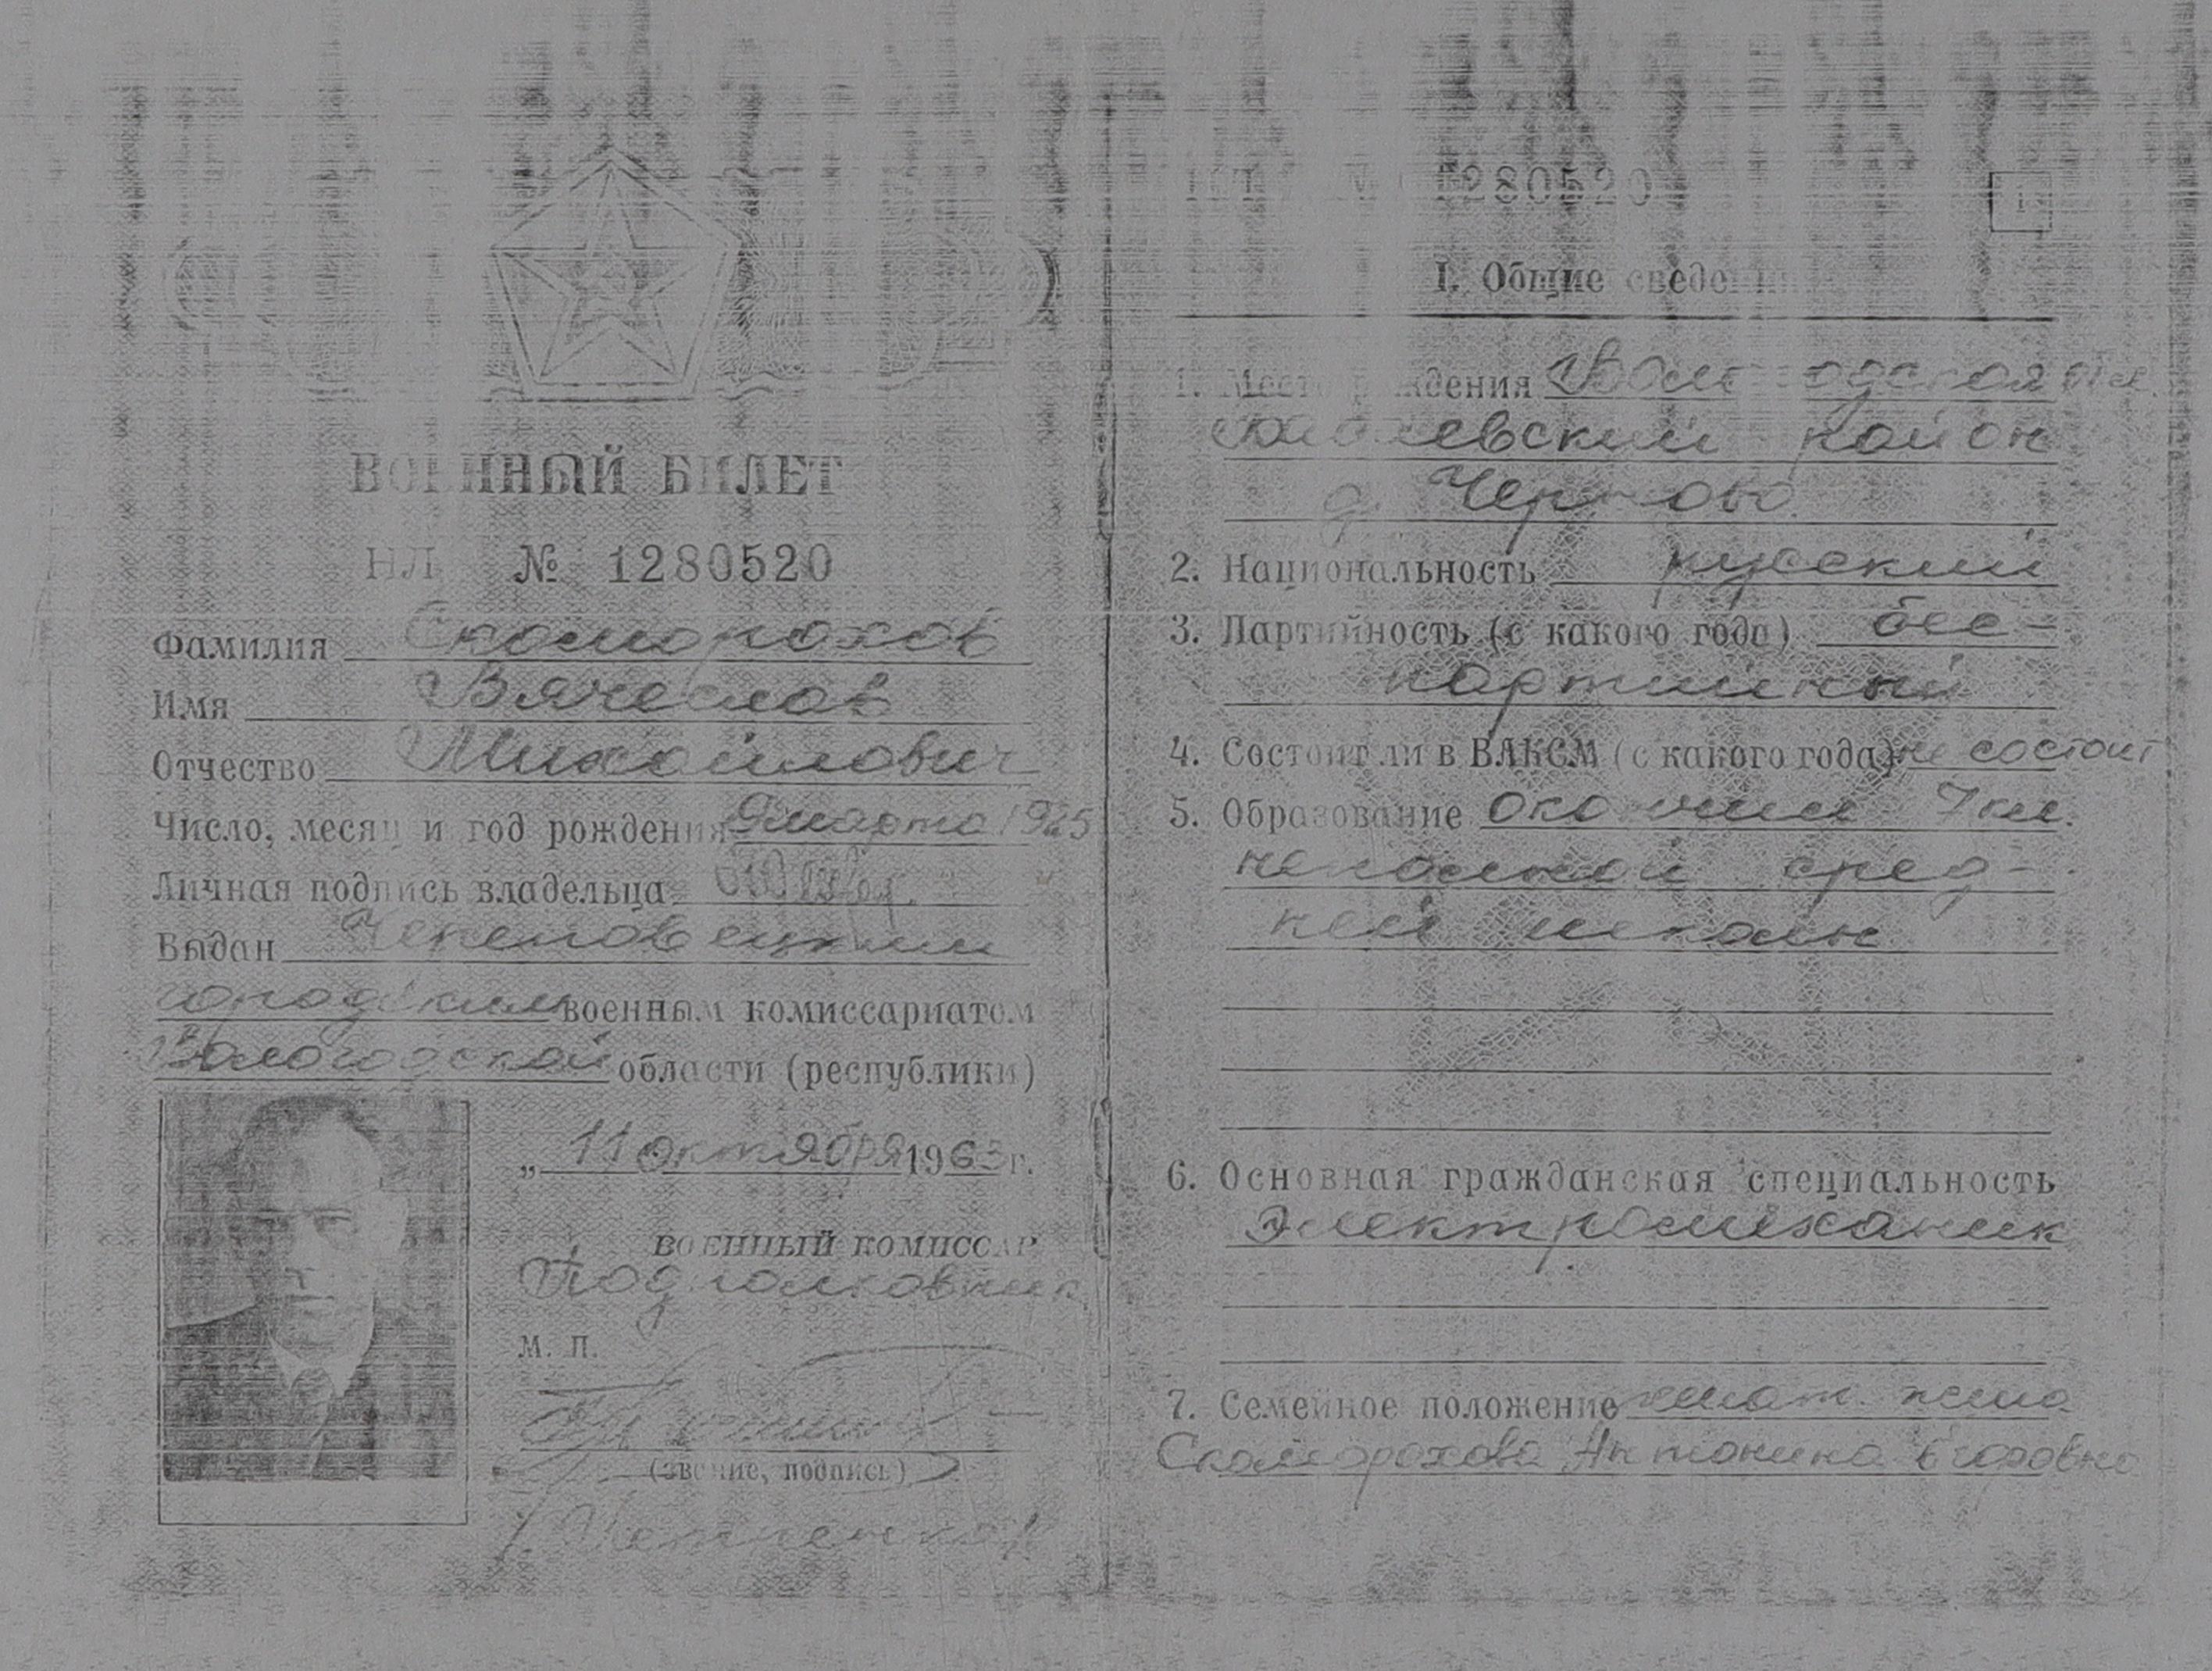 ВОЕННЫЙ БИЛЕТ
НЛ № 1280520
Фамилия Скоморохов
Имя Вячеслав
Отчество Михайлович
Число, месяц и год рождения 9 марта 1925
Личная подпись владельца
Выдан Череповецким
городским военным комиссариатом
Вологодской области (республики)
„ 11 октября 1963 г.
ВОЕННЫЙ КОМИССАР
Подполковник
М. П.
(звание, подпись)
1280520
1
I. Общие сведения
1. Место рождения Вологодская обл.
район
д.
2. Национальность русский
3. Партийность (с какого года) бес-
партийный
4. Состоит ли в ВЛКСМ (с какого года) не состоит
5. Образование окончил 7 кл.
неполной сред-
ней школы
6. Основная гражданская специальность
Электромеханик
7. Семейное положение женат. жена
Скоморохова Антонина Егоровна